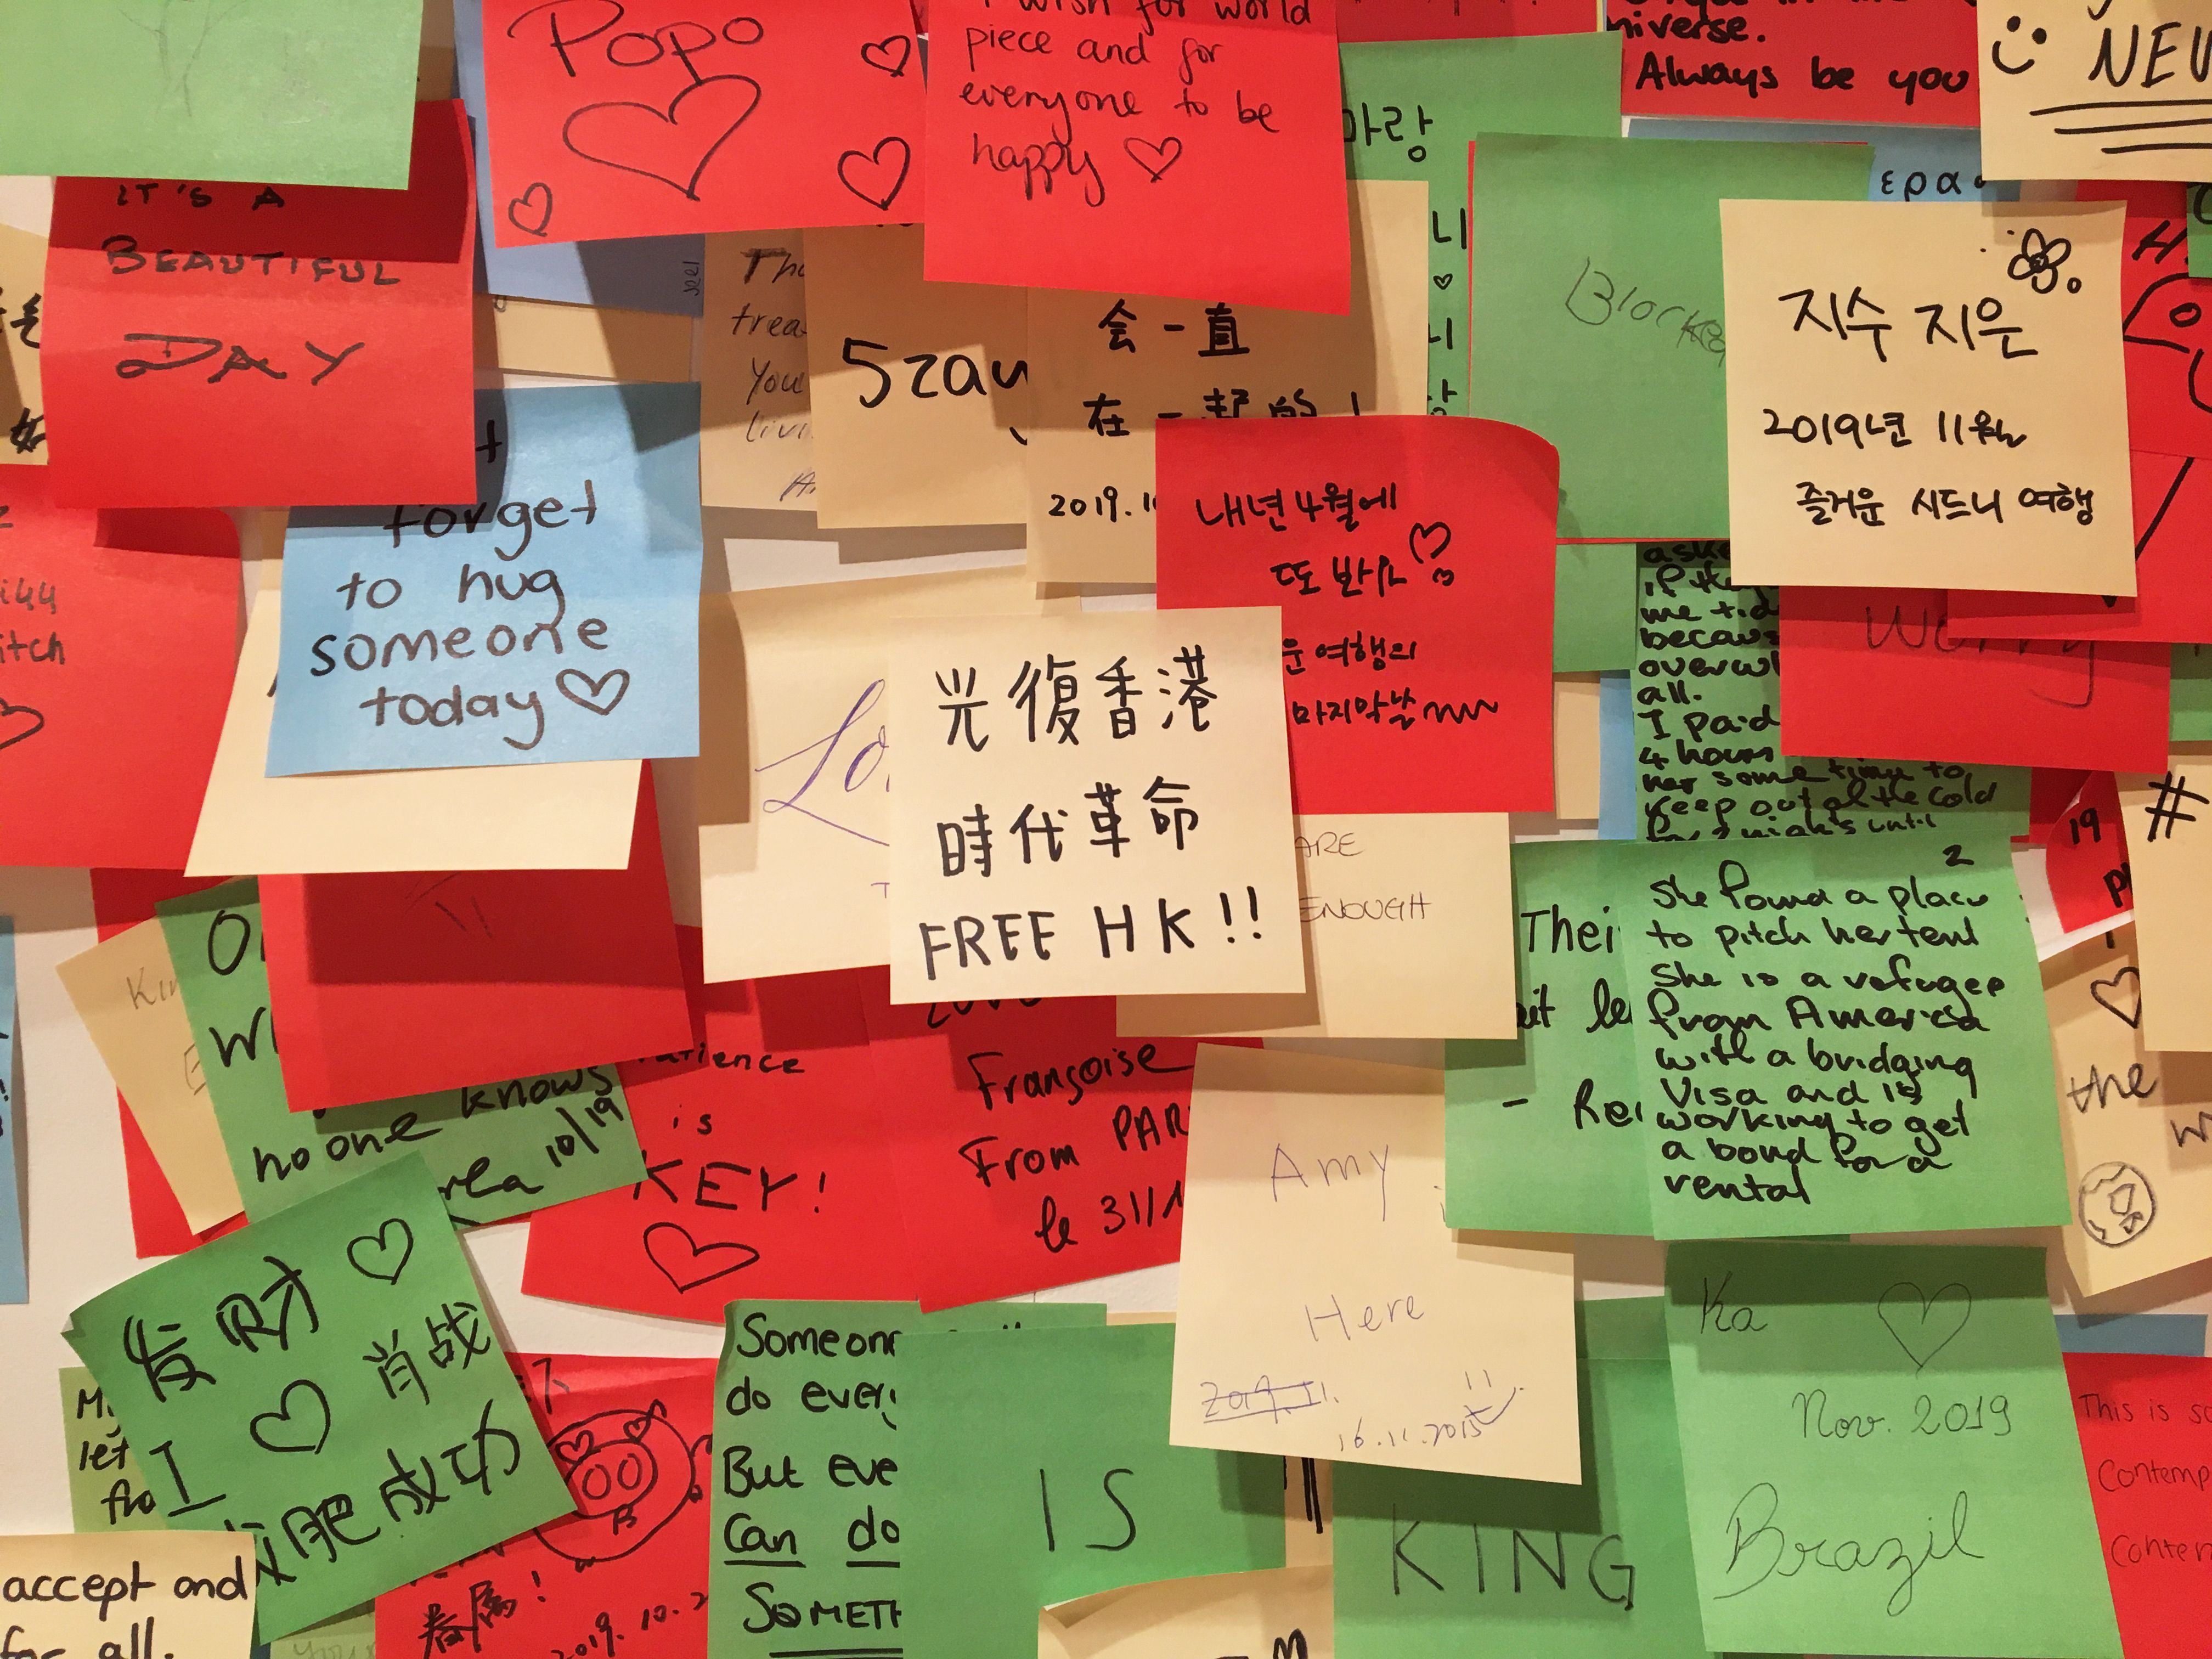 Popo
I wish for world
piece and for
everyone to be
happy
niverse.
Always be you
NEW
마랑
IT'S A
BEAUTIFUL
DAY
지수 지은
2019년 11월
즐거운 시드니 여행
Szau
会一直
在一起的!
2019.1
forget
to hug
someone
today
내년 4월에
또 봐요
운 여행의
마지막날
光復香港
時代革命
FREE HK!!
ARE
ENOUGH
if the
me
becaus
overwl
all.
I paid
4 hours
her some time to
keep out of the cold
2
She found a place
to pitch her tent
She is a refugee
from America
with a bridging
Visa and is
working to get
a bond for a
rental
Thei
#
19
the
no one knows
10/19
is
KEY!
Françoise
From PAR
le 31/1
Amy
Here
16.11.2015
发财
肖战
I
减肥成功
Someone
do ever
But eve
Can do
SOMETH
IS
KING
Ka
Nov. 2019
Brazil
This is so
Contemp
Conte
accept and
for all.
眷属!
2019.10.2